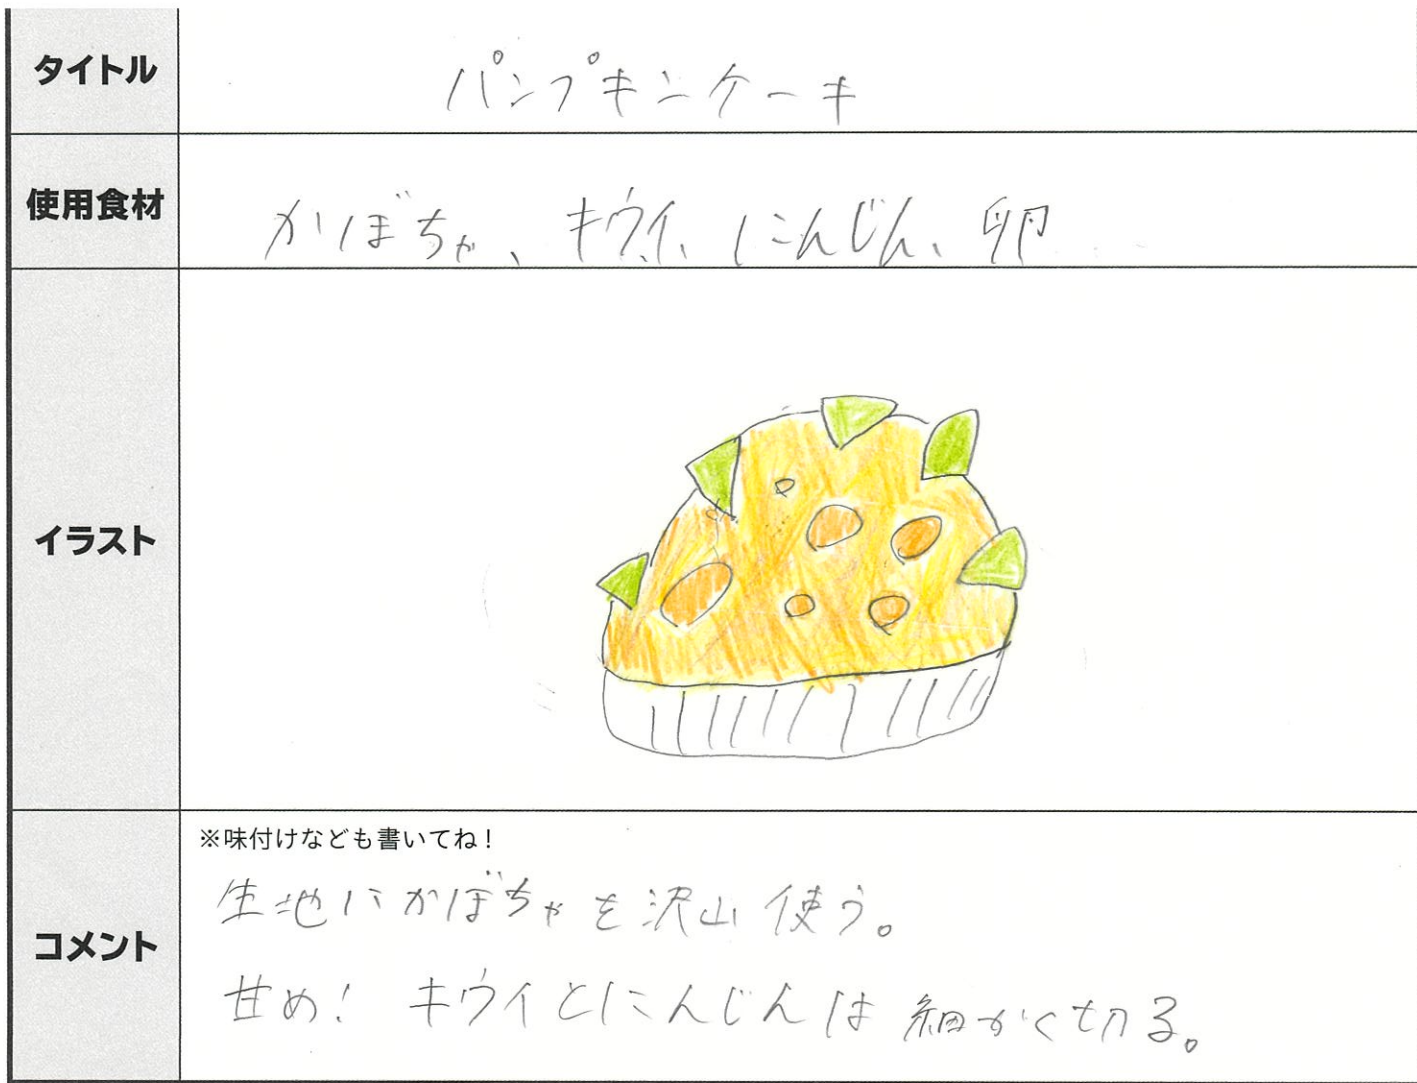 タイトル
パンプキンケーキ
使用食材
かぼちゃ、キウイ、にんじん、卵
イラスト
コメント
※味付けなども書いてね!
生地にかぼちゃを沢山使う。
甘め! キウイとにんじんは細かく切る。